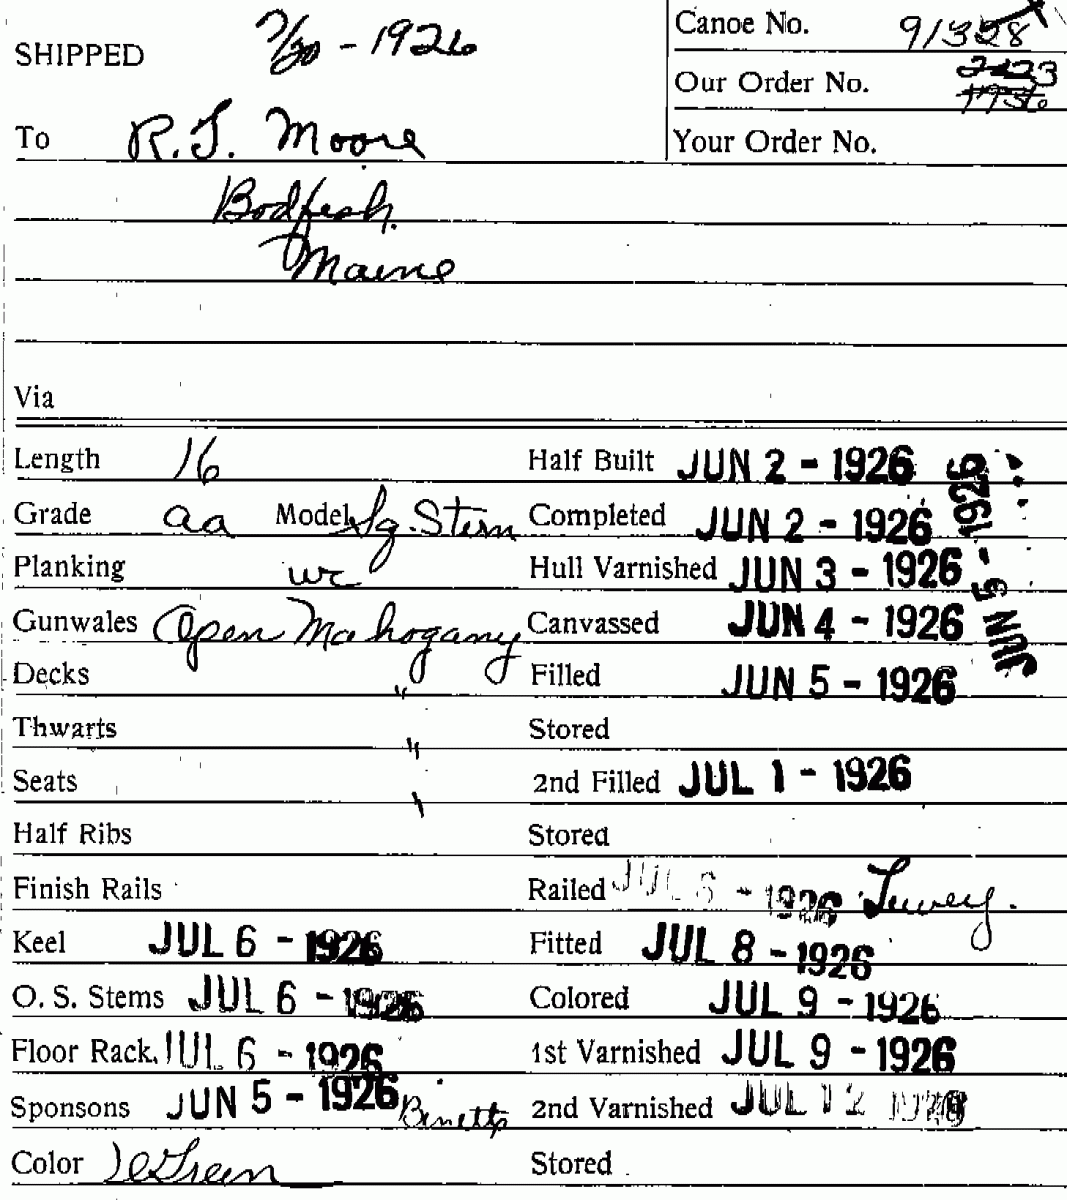 SHIPPED 7/20 - 1926
Canoe No. 91328
Our Order No. 2223
1736
To R. J. Moore
Your Order No.
Bodfish.
Maine
Via
Length 16 Half Built JUN 2 - 1926
Grade aa Model Sq. Stern Completed JUN 2 - 1926
Planking wc Hull Varnished JUN 3 - 1926
JUN 5 - 1926
Gunwales Open Mahogany Canvassed JUN 4 - 1926
Decks " Filled JUN 5 - 1926
Thwarts " Stored
Seats " 2nd Filled JUL 1 - 1926
Half Ribs Stored
Finish Rails Railed JUL 6 - 1926
Keel JUL 6 - 1926 Fitted JUL 8 - 1926
O. S. Stems JUL 6 - 1926 Colored JUL 9 - 1926
Floor Rack. JUL 6 - 1926 1st Varnished JUL 9 - 1926
Sponsons JUN 5 - 1926 2nd Varnished JUL 12 1926
Color Green Stored